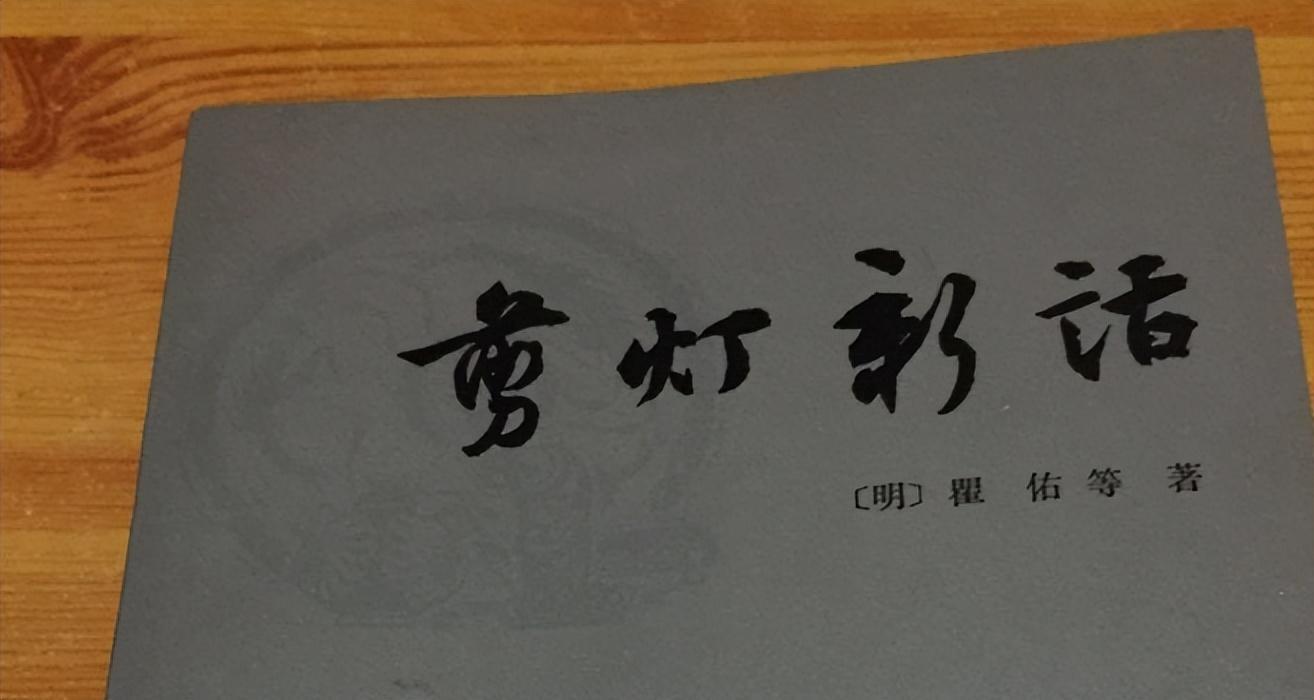 剪灯新话
〔明〕瞿 佑 等 著